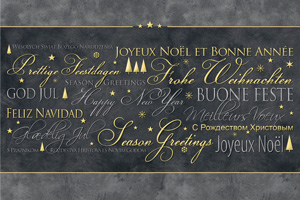 WESOŁYCH ŚWIĄT BOŻEGO NARODZENIA
JOYEUX NOËL ET BONNE ANNÉE
Prettige Feestdagen
SEASON'S GREETINGS
Frohe Weihnachten
GOD JUL
Happy New Year
BUONE FESTE
FELIZ NAVIDAD
Meilleurs Voeux
С Рождеством Христовым
Glædelig Jul
Season's Greetings
Joyeux Noël